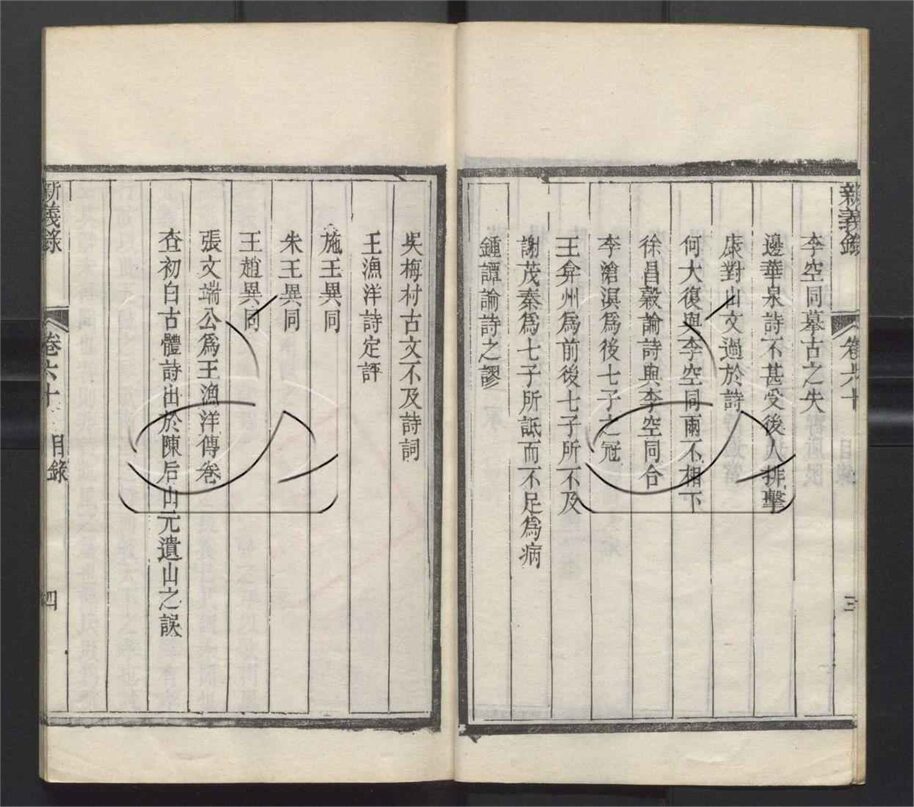 新義錄
卷六十
目錄
三
李空同摹古之失
邊華泉詩不甚受後人排擊
康對山文過於詩
何大復與李空同兩不相下
徐昌穀論詩與李空同合
李滄溟爲後七子之冠
王弇州爲前後七子所不及
謝茂秦爲七子所詆而不足爲病
鍾譚論詩之謬
吳梅村古文不及詩詞
王漁洋詩定評
施王異同
朱王異同
王趙異同
張文端公爲王漁洋傳卷
查初白古體詩出於陳后山元遺山之誤
新義錄
卷六十
目錄
四